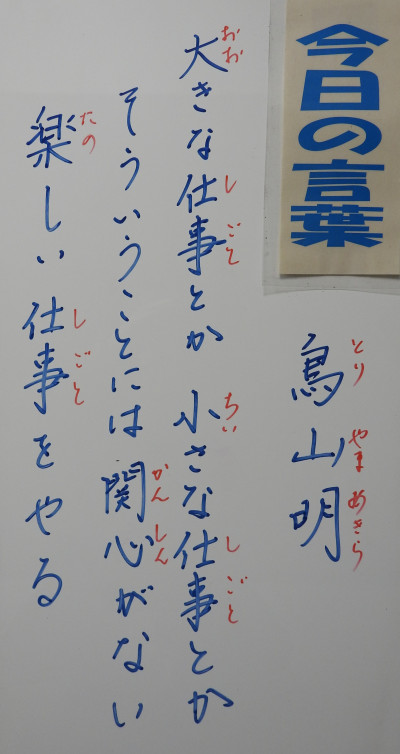 今日の言葉
鳥山明
とり やま あきら
大きな仕事とか 小さな仕事とか
おお しごと ちい しごと
そういうことには関心がない
かんしん
楽しい仕事をやる
たの しごと